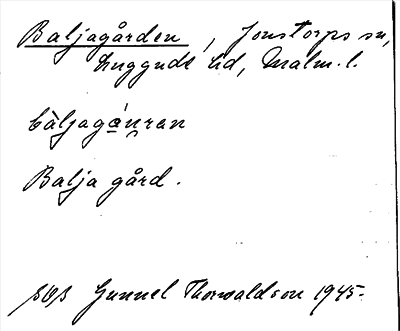 Baljagården, Jonstorps sn,
Luggude hd, Malm. l.
bàljagánran
Balja gård.
Gunnel Thorwaldson 1945.